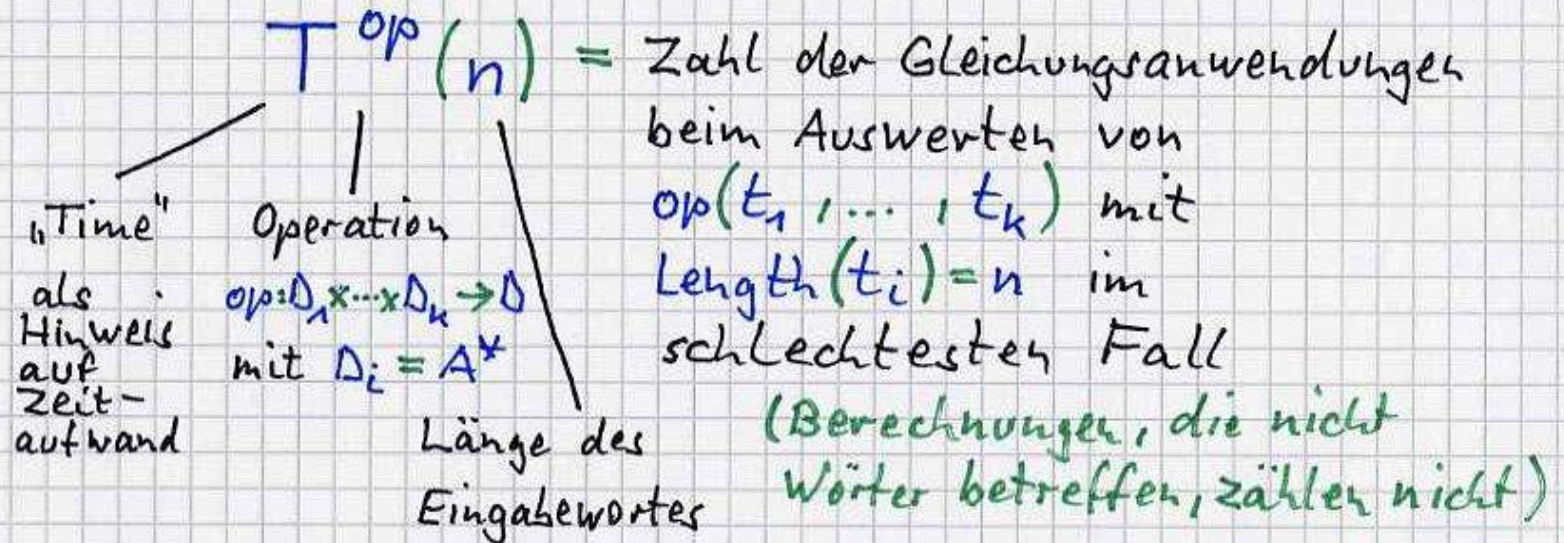 T^op (n) = Zahl der Gleichungsanwendungen
beim Auswerten von
op(t₁, ..., t_k) mit
Length(t_i) = n im
schlechtesten Fall
(Berechnungen, die nicht
Wörter betreffen, zählen nicht)
„Time"
als
Hinweis
auf
Zeit-
aufwand
Operation
op: D₁ x ... x D_k → D
mit D_i = A*
Länge des
Eingabewortes